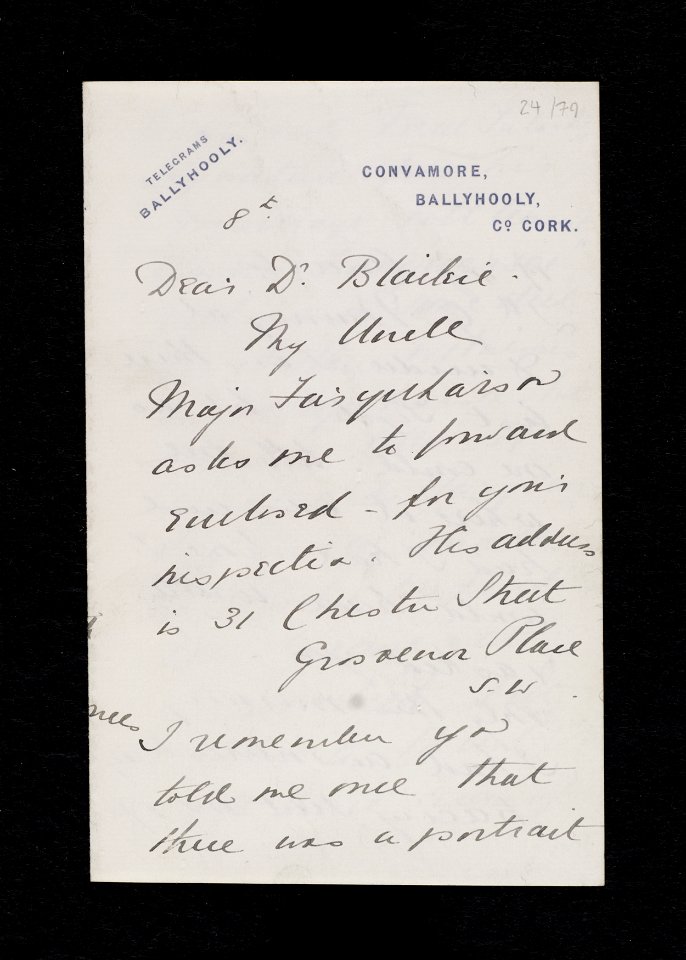 24/79
TELEGRAMS
BALLYHOOLY.
CONVAMORE,
BALLYHOOLY,
Co CORK.
8th
Dear Dr. Blaikie.
My Uncle
Major Farquharson
asks me to forward
enclosed - for your
inspection. His address
is 31 Chester Street
Grosvenor Place
S.W.
I remember yr
told me once that
there was a portrait